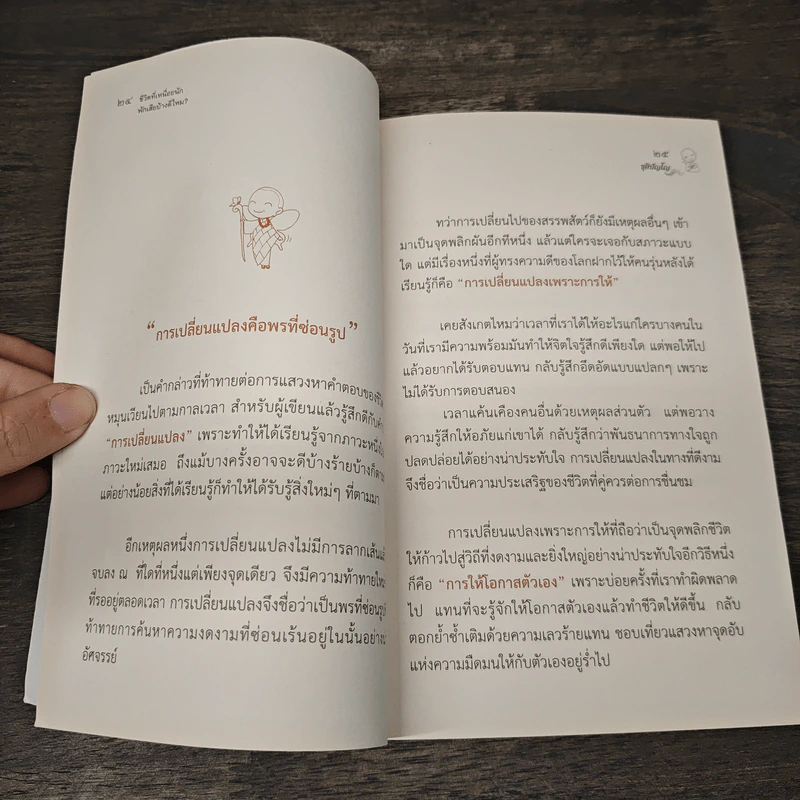 ๒๔ ชีวิตที่เหนื่อยนัก
พักเสียบ้างดีไหม?
“การเปลี่ยนแปลงคือพรที่ซ่อนรูป”
เป็นคำกล่าวที่ท้าทายต่อการแสวงหาคำตอบของชีวิ
หมุนเวียนไปตามกาลเวลา สำหรับผู้เขียนแล้วรู้สึกดีกับคำ
“การเปลี่ยนแปลง” เพราะทำให้ได้เรียนรู้จากภาวะหนึ่ง
ภาวะใหม่เสมอ ถึงแม้บางครั้งอาจจะดีบ้างร้ายบ้างก็ตาม
แต่อย่างน้อยสิ่งที่ได้เรียนรู้ก็ทำให้ได้รับรู้สิ่งใหม่ๆ ที่ตามมา
อีกเหตุผลหนึ่งการเปลี่ยนแปลงไม่มีการลากเส้น
จบลง ณ ที่ใดที่หนึ่งแต่เพียงจุดเดียว จึงมีความท้าทายใหม่
ที่รออยู่ตลอดเวลา การเปลี่ยนแปลงจึงชื่อว่าเป็นพรที่ซ่อนรูป
ท้าทายการค้นหาความงดงามที่ซ่อนเร้นอยู่ในนั้นอย่าง
อัศจรรย์
๒๕
ทว่าการเปลี่ยนไปของสรรพสัตว์ก็ยังมีเหตุผลอื่นๆ เข้า
มาเป็นจุดพลิกผันอีกทีหนึ่ง แล้วแต่ใครจะเจอกับสภาวะแบบ
ใด แต่มีเรื่องหนึ่งที่ผู้ทรงความดีของโลกฝากไว้ให้คนรุ่นหลังได้
เรียนรู้ก็คือ “การเปลี่ยนแปลงเพราะการให้”
เคยสังเกตไหมว่าเวลาที่เราได้ให้อะไรแก่ใครบางคนใน
วันที่เรามีความพร้อมมันทำให้จิตใจรู้สึกดีเพียงใด แต่พอให้ไป
แล้วอยากได้รับตอบแทน กลับรู้สึกอึดอัดแบบแปลกๆ เพราะ
ไม่ได้รับการตอบสนอง
เวลาแค้นเคืองคนอื่นด้วยเหตุผลส่วนตัว แต่พอวาง
ความรู้สึกให้อภัยแก่เขาได้ กลับรู้สึกว่าพันธนาการทางใจถูก
ปลดปล่อยได้อย่างน่าประทับใจ การเปลี่ยนแปลงในทางที่ดีงาม
จึงชื่อว่าเป็นความประเสริฐของชีวิตที่คู่ควรต่อการชื่นชม
การเปลี่ยนแปลงเพราะการให้ที่ถือว่าเป็นจุดพลิกชีวิต
ให้ก้าวไปสู่วิถีที่งดงามและยิ่งใหญ่อย่างน่าประทับใจอีกวิธีหนึ่ง
ก็คือ “การให้โอกาสตัวเอง” เพราะบ่อยครั้งที่เราทำผิดพลาด
ไป แทนที่จะรู้จักให้โอกาสตัวเองแล้วทำชีวิตให้ดีขึ้น กลับ
ตอกย้ำซ้ำเติมด้วยความเลวร้ายแทน ชอบเที่ยวแสวงหาจุดอับ
แห่งความมืดมนให้กับตัวเองอยู่ร่ำไป